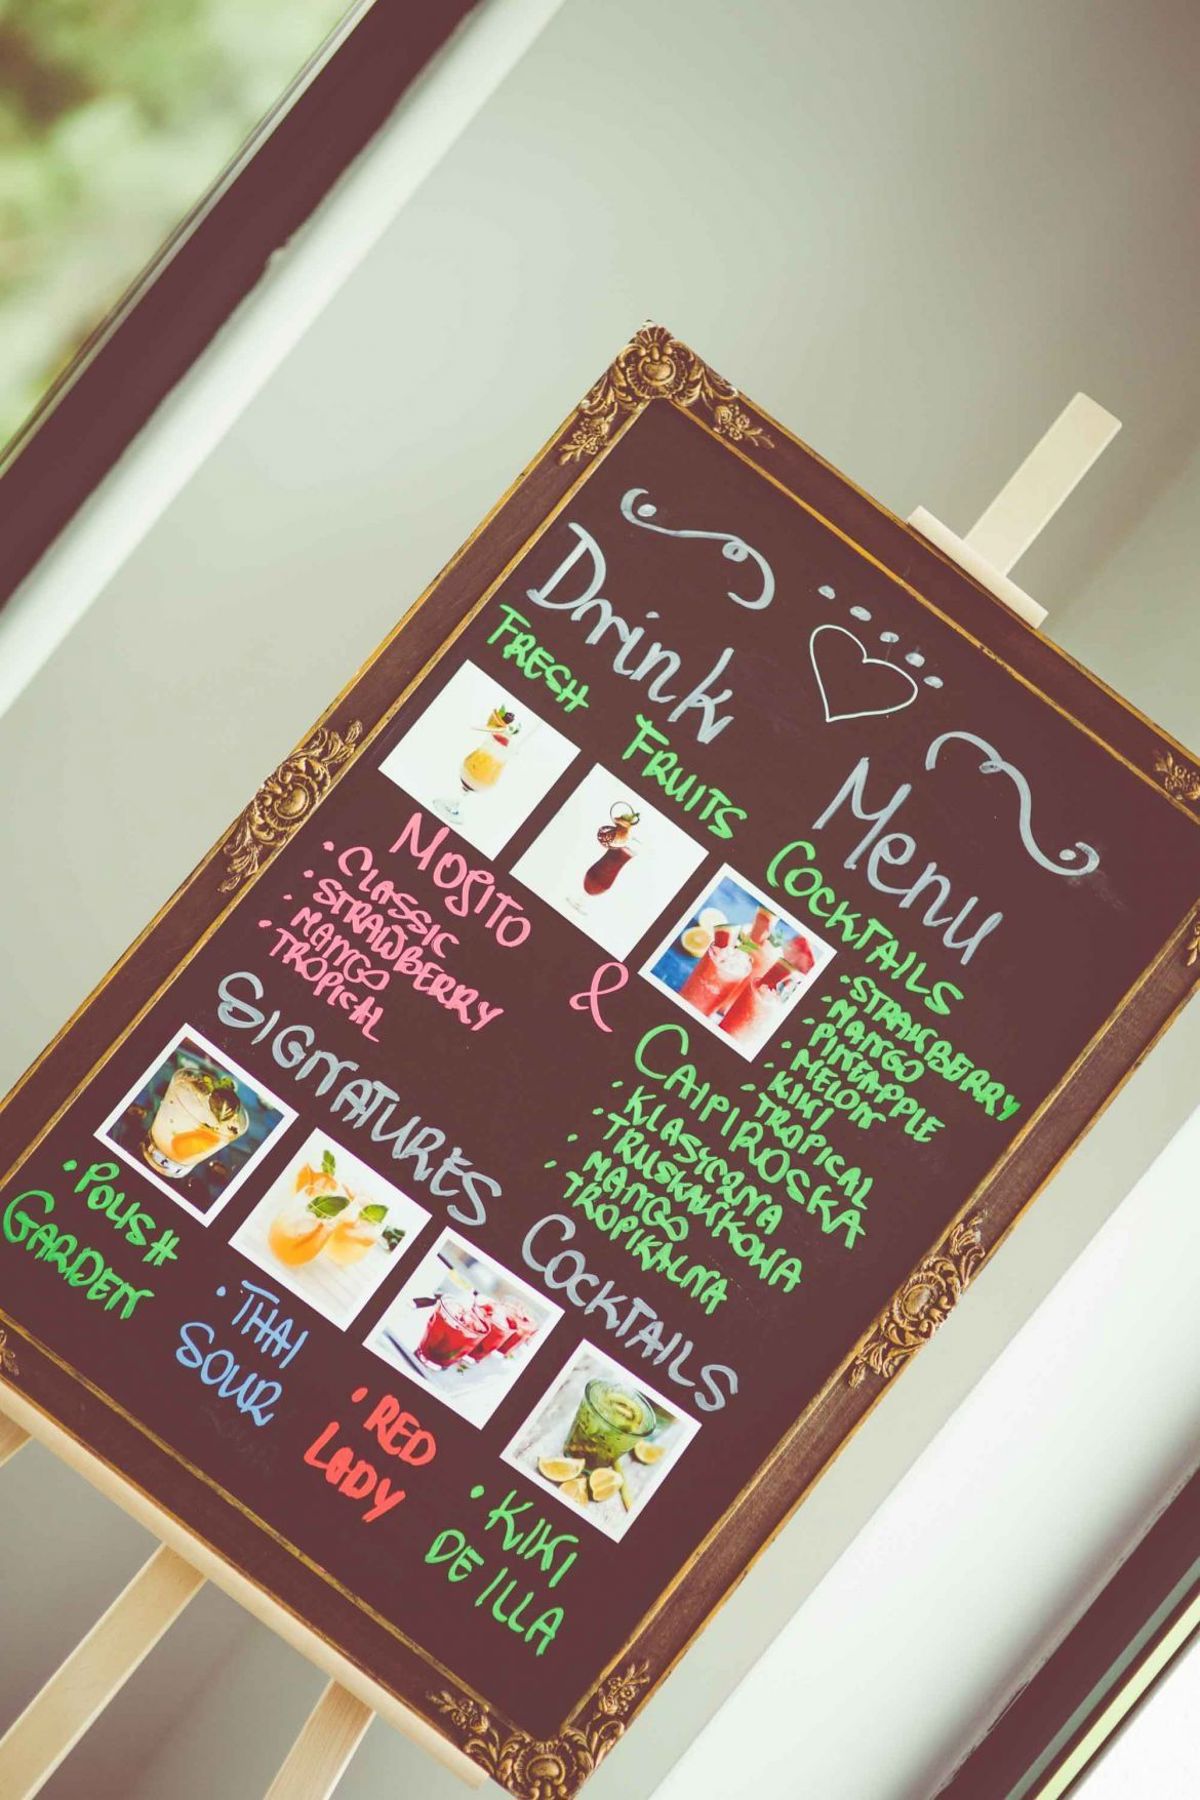 Drink Menu
FRESH FRUITS COCKTAILS
MOJITO
• CLASSIC
• STRAWBERRY
• MANGO
• TROPICAL
&
• STRAWBERRY
• MANGO
• PINEAPPLE
• MELON
• KIWI
• TROPICAL
CAIPIROSKA
• KLASYCZNA
• TRUSKAWKOWA
• MANGO
• TROPIKALNA
SIGNATURES COCKTAILS
• POLISH
GARDEN
• THAI
SOUR
• RED
LADY
• KIKI
DE ILLA